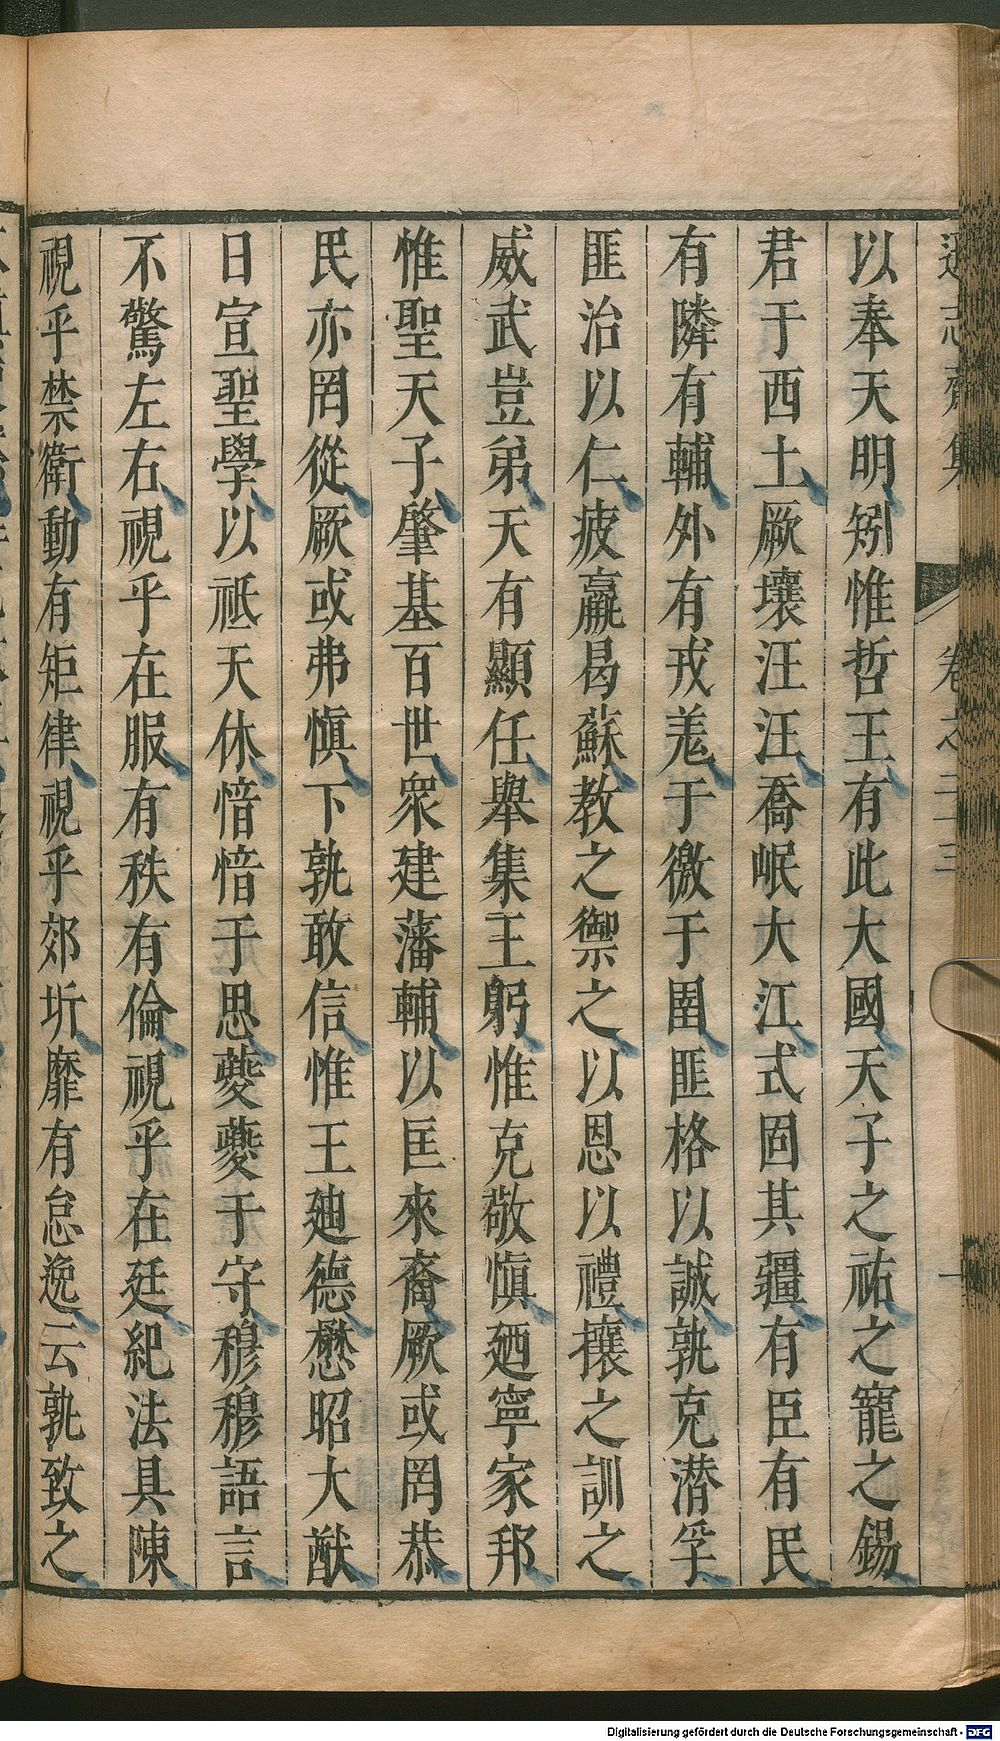 以奉天明矧惟哲王有此大國天子之祐之寵之錫
君于西土厥壤汪汪喬岷大江式固其疆有臣有民
有隣有輔外有戎羗于徼于圉匪格以誠孰克潜孚
匪治以仁疲羸曷蘇教之禦之以恩以禮攘之訓之
威武豈弟天有顯任舉集王躬惟克敬愼廼寧家邦
惟聖天子肇基百世衆建藩輔以匡來裔厥或罔恭
民亦罔從厥或弗愼下孰敢信惟王廸德懋昭大猷
日宣聖學以祗天休愔愔于思夔夔于守穆穆語言
不驚左右視乎在服有秩有倫視乎在廷紀法具陳
視乎禁衛動有矩律視乎郊圻靡有怠逸云孰致之
遜志齋集
卷之二十三
一
Digitalisierung gefördert durch die Deutsche Forschungsgemeinschaft - DFG